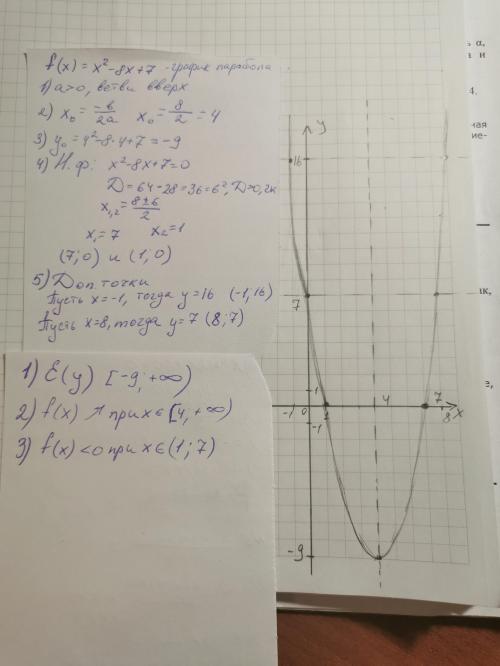 f(x) = x²-8x+7 -график парабола
1) a>0, ветви вверх
2) x₀ = -b/2a x₀ = 8/2 = 4
3) y₀ = 4²-8·4+7 = -9
4) Н.ф: x²-8x+7=0
D = 64-28=36=6², D>0, 2к
x₁,₂ = 8±6/2
x₁=7 x₂=1
(7;0) и (1;0)
5) Доп. точки
Пусть x=-1, тогда y=16 (-1,16)
Пусть x=8, тогда y=7 (8;7)
1) E(y) [-9; +∞)
2) f(x) ↗ при x∈[4, +∞)
3) f(x) <0 при x∈(1;7)
y
16
7
1
-1 0 1 4 7 8 x
-1
-9